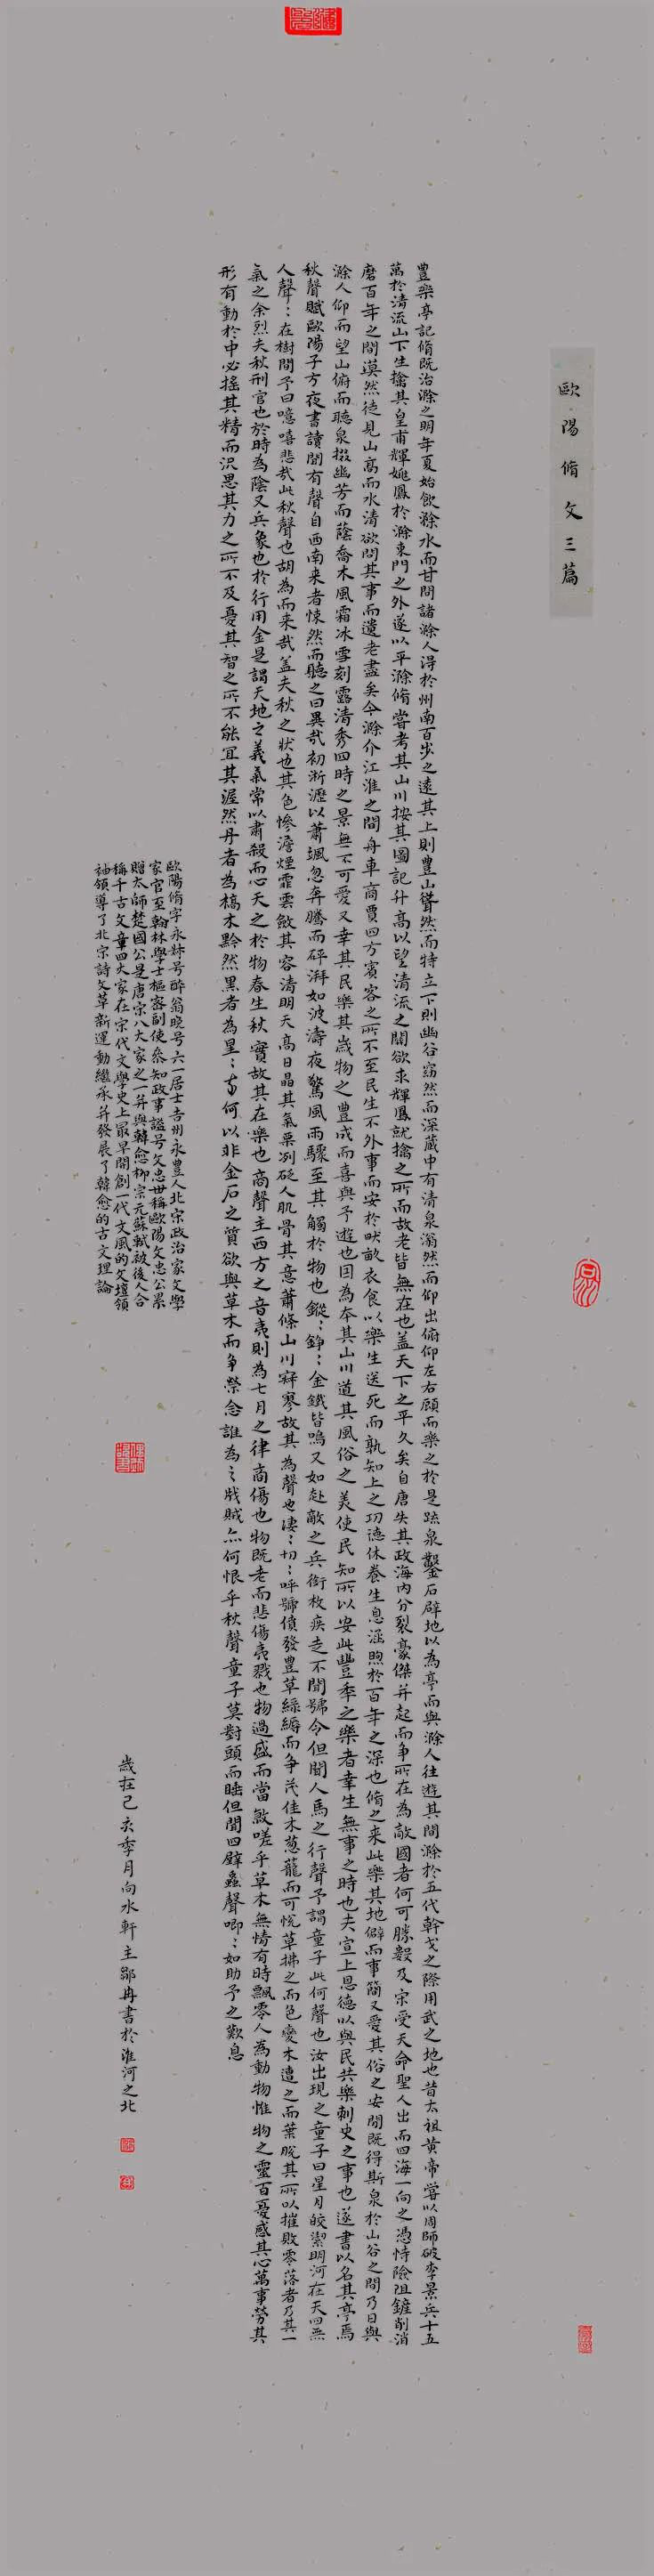 歐陽脩文三篇
豐樂亭記脩既治滁之明年夏始飲滁水而甘問諸滁人得於州南百步之遠其上則豐山聳然而特立下則幽谷窈然而深藏中有清泉滃然而仰出俯仰左右顧而樂之於是疏泉鑿石辟地以為亭而與滁人往遊其間滁於五代幹戈之際用武之地也昔太祖黄帝嘗以周師破李景兵十五
萬於清流山下生擒其皇甫輝姚鳳於滁東門之外遂以平滁脩嘗考其山川按其圖記升高以望清流之關欲求輝鳳就擒之所而故老皆無在也盖天下之平久矣自唐失其政海內分裂豪傑并起而争所在為敵國者何可勝數及宋受天命聖人出而四海一向之憑恃險阻鏟削消
磨百年之間漠然徒見山高而水清欲問其事而遺老盡矣今滁介江淮之間舟車商賈四方賓客之所不至民生不外事而安於畎畝衣食以樂生送死而孰知上之功德休養生息涵煦於百年之深也脩之来此樂其地僻而事簡又愛其俗之安閒既得斯泉於山谷之間乃日與
滁人仰而望山俯而聽泉掇幽芳而蔭喬木風霜冰雪刻露清秀四時之景無不可愛又幸其民樂其歲物之豐成而喜與予遊也因為本其山川道其風俗之美使民知所以安此豐年之樂者幸生無事之時也夫宣上恩德以與民共樂刺史之事也遂書以名其亭焉
秋聲賦歐陽子方夜書讀聞有聲自西南来者悚然而聽之曰異哉初淅瀝以蕭颯忽奔騰而砰湃如波濤夜驚風雨驟至其觸於物也鏦:錚:金鐵皆鳴又如赴敵之兵銜枚疾走不聞號令但聞人馬之行聲予謂童子此何聲也汝出現之童子曰星月皎潔明河在天四無
人聲:在樹間予曰噫嘻悲哉此秋聲也胡為而来哉盖夫秋之狀也其色慘澹煙霏雲斂其容清明天高日晶其氣栗冽砭人肌骨其意蕭條山川寂寥故其為聲也凄:切:呼號憤發豐草綠縟而争茂佳木葱蘢而可悅草拂之而色變木遭之而葉脫其所以摧敗零落者乃其一
氣之余烈夫秋刑官也於時為陰又兵象也於行用金是謂天地之義氣常以肅殺而心天之於物春生秋實故其在樂也商聲主西方之音夷則為七月之律商傷也物既老而悲傷夷戮也物過盛而當殺嗟乎草木無情有時飄零人為動物惟物之靈百憂感其心萬事勞其
形有動於中必搖其精而況思其力之所不及憂其智之所不能宜其渥然丹者為槁木黟然黑者為星:奈何以非金石之質欲與草木而争榮念誰為之戕賊亦何恨乎秋聲童子莫對頭而睡但聞四壁蟲聲唧:如助予之歎息
歐陽脩字永妹号醉翁晚号六一居士吉州永豊人北宋政治家文學
家官至翰林學士樞密副使叅知政事謚号文忠世稱歐陽文忠公累
贈太師楚國公是唐宋八大家之一并與韓愈柳宗元蘇軾被後人合
稱千古文章四大家在宋代文學史上最早開創一代文風的文壇領
袖領導了北宋詩文革新運動繼承并發展了韓愈的古文理論
歲在己亥季月向水軒主鄒冉書於淮河之北